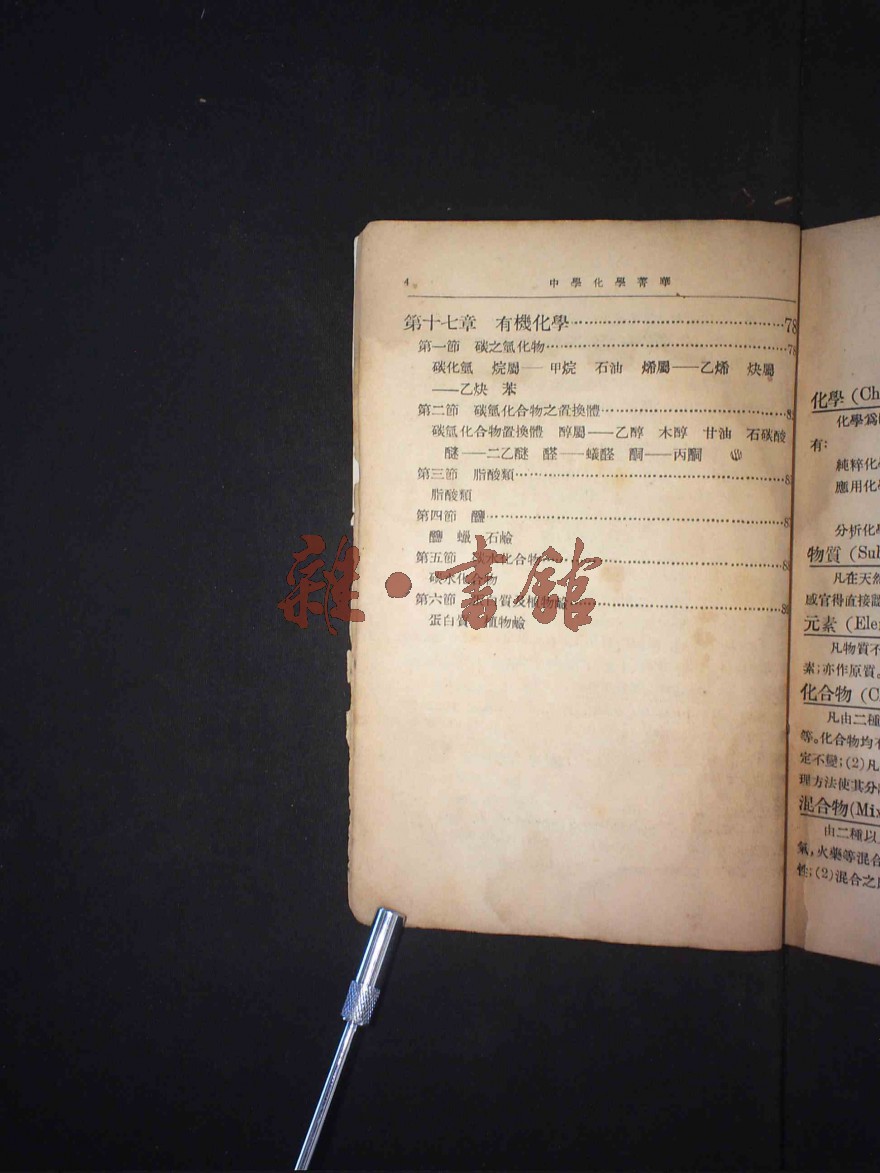 4
中學化學菁華
第十七章 有機化學……78
第一節 碳之氫化物……78
碳化氫 烷屬——甲烷 石油 烯屬——乙烯 炔屬
——乙炔 苯
第二節 碳氫化合物之置換體……
碳氫化合物置換體 醇屬——乙醇 木醇 甘油 石碳酸
醚——二乙醚 醛——蟻醛 酮——丙酮
第三節 脂酸類……
脂酸類
第四節 鹽……
鹽 蠟 石鹼
第五節 碳水化合物……
碳水化合物
第六節 蛋白質及植物鹼……
蛋白質 植物鹼
雜·書館
化學 (Ch
化學爲
有:
純粹化
應用化
分析化
物質 (Sub
凡在天然
感官得直接
元素 (Ele
凡物質不
素;亦作原質。
化合物 (C
凡由二種
等。化合物均
定不變;(2)凡
理方法使其分
混合物(Mix
由二種以
氣,火藥等混合
性;(2)混合之